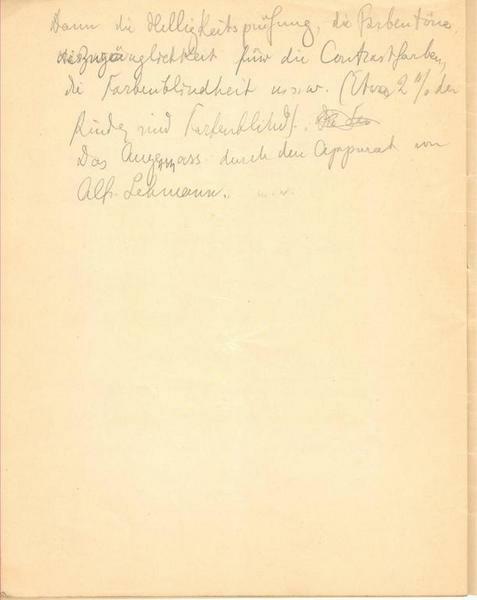 Dann die Helligkeitsprüfung, die Farbentöne,
die Zugänglichkeit für die Contrastfarben,
die Farbenblindheit u.s.w. (Etwa 2% der
Kinder sind Farbenblind).
Das Augenmass durch den Apparat von
Alfr. Lehmann.